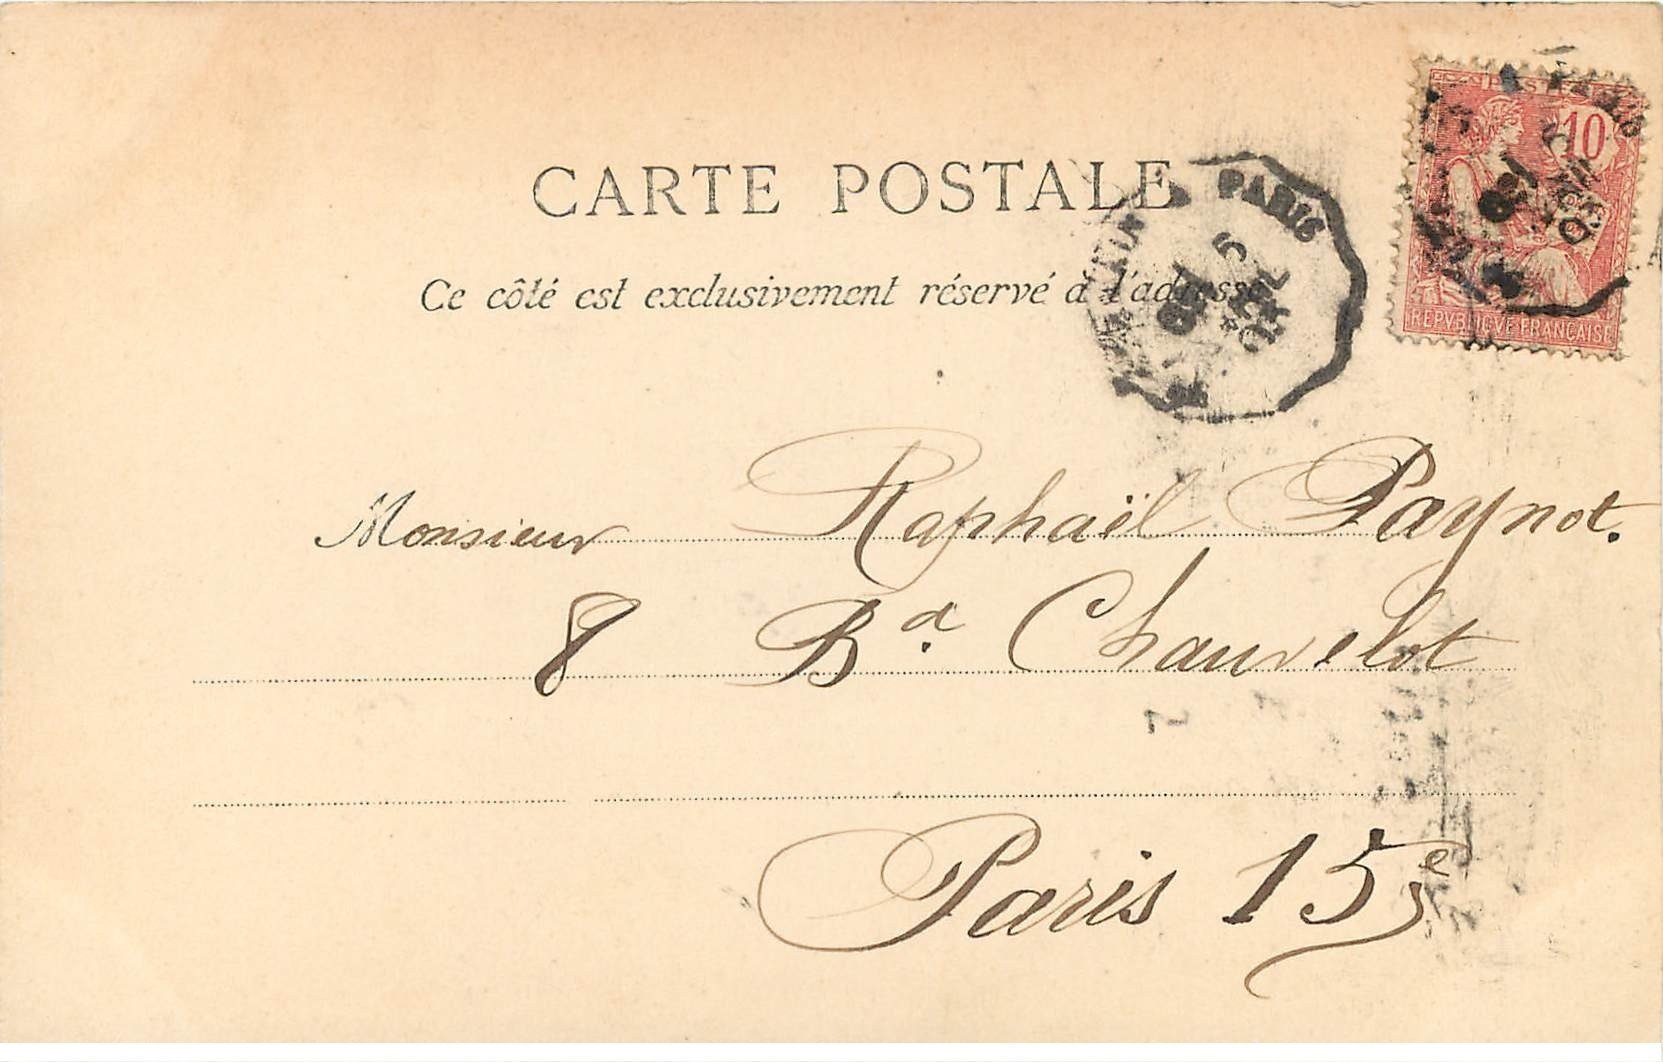 CARTE POSTALE
Ce côté est exclusivement réservé à l'adresse
PARIS
POSTES
10
REPUBLIQUE FRANÇAISE
Monsieur Raphaël Paynot.
8 Bd. Chauvelot
Paris 15e